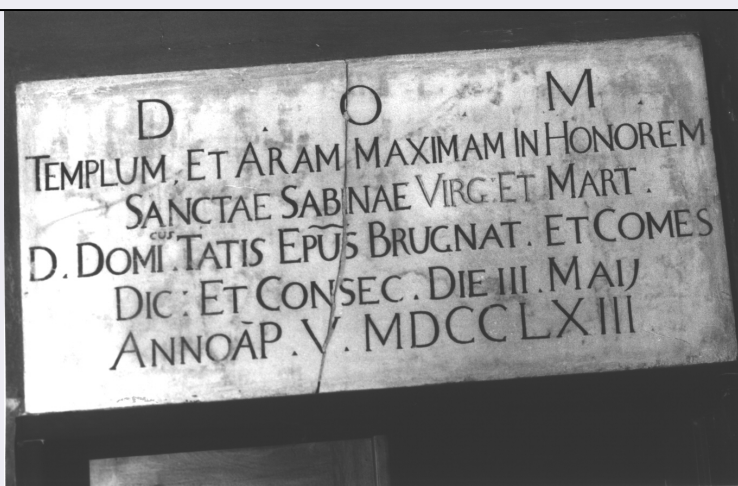 D . O M .
TEMPLUM, ET ARAM MAXIMAM IN HONOREM
SANCTAE SABINAE VIRG: ET MART .
D. DOMI.cus TATIS EPU͂S BRUGNAT. ET COMES
DIC: ET CONSEC. DIE III. MAIJ
ANNO ĀP. V. MDCCLXIII.